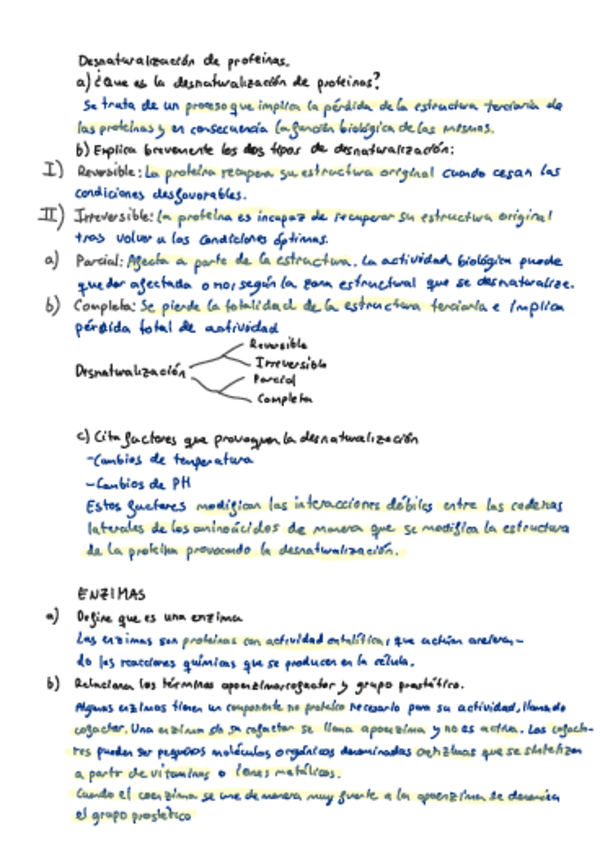 Desnaturalización de proteínas.
a) ¿Que es la desnaturalización de proteínas?
Se trata de un proceso que implica la pérdida de la estructura terciaria de
las proteínas y en consecuencia la función biológica de las mismas.
b) Explica brevemente los dos tipos de desnaturalización:
I) Reversible: La proteína recupera su estructura original cuando cesan las
condiciones desfavorables.
II) Irreversible: la proteína es incapaz de recuperar su estructura original
tras volver a las condiciones óptimas.
a) Parcial: Afecta a parte de la estructura. La actividad biológica puede
quedar afectada o no, según la zona estructural que se desnaturalize.
b) Completa: Se pierde la totalidad de la estructura terciaria e implica
pérdida total de actividad
Reversible
Irreversible
Desnaturalización
Parcial
Completa
c) Cita factores que provoquen la desnaturalización
-Cambios de temperatura
-Cambios de PH
Estos factores modifican las interacciones débiles entre las cadenas
laterales de los aminoácidos de manera que se modifica la estructura
de la proteína provocando la desnaturalización.
ENZIMAS
a) Define que es una enzima
Las enzimas son proteínas con actividad catalítica, que actúan aceleran-
do las reacciones químicas que se producen en la célula.
b) Relaciona los términos apoenzima, cofactor y grupo prostético.
Algunas enzimas tienen un componente no proteico necesario para su actividad, llamado
cofactor. Una enzima sin su cofactor se llama apoenzima y no es activa. Los cofacto-
res pueden ser pequeños moléculas orgánicas denominadas coenzimas que se sintetizan
a partir de vitaminas o iones metálicos.
Cuando el coenzima se une de manera muy fuerte a la apoenzima se denomina
el grupo prostético